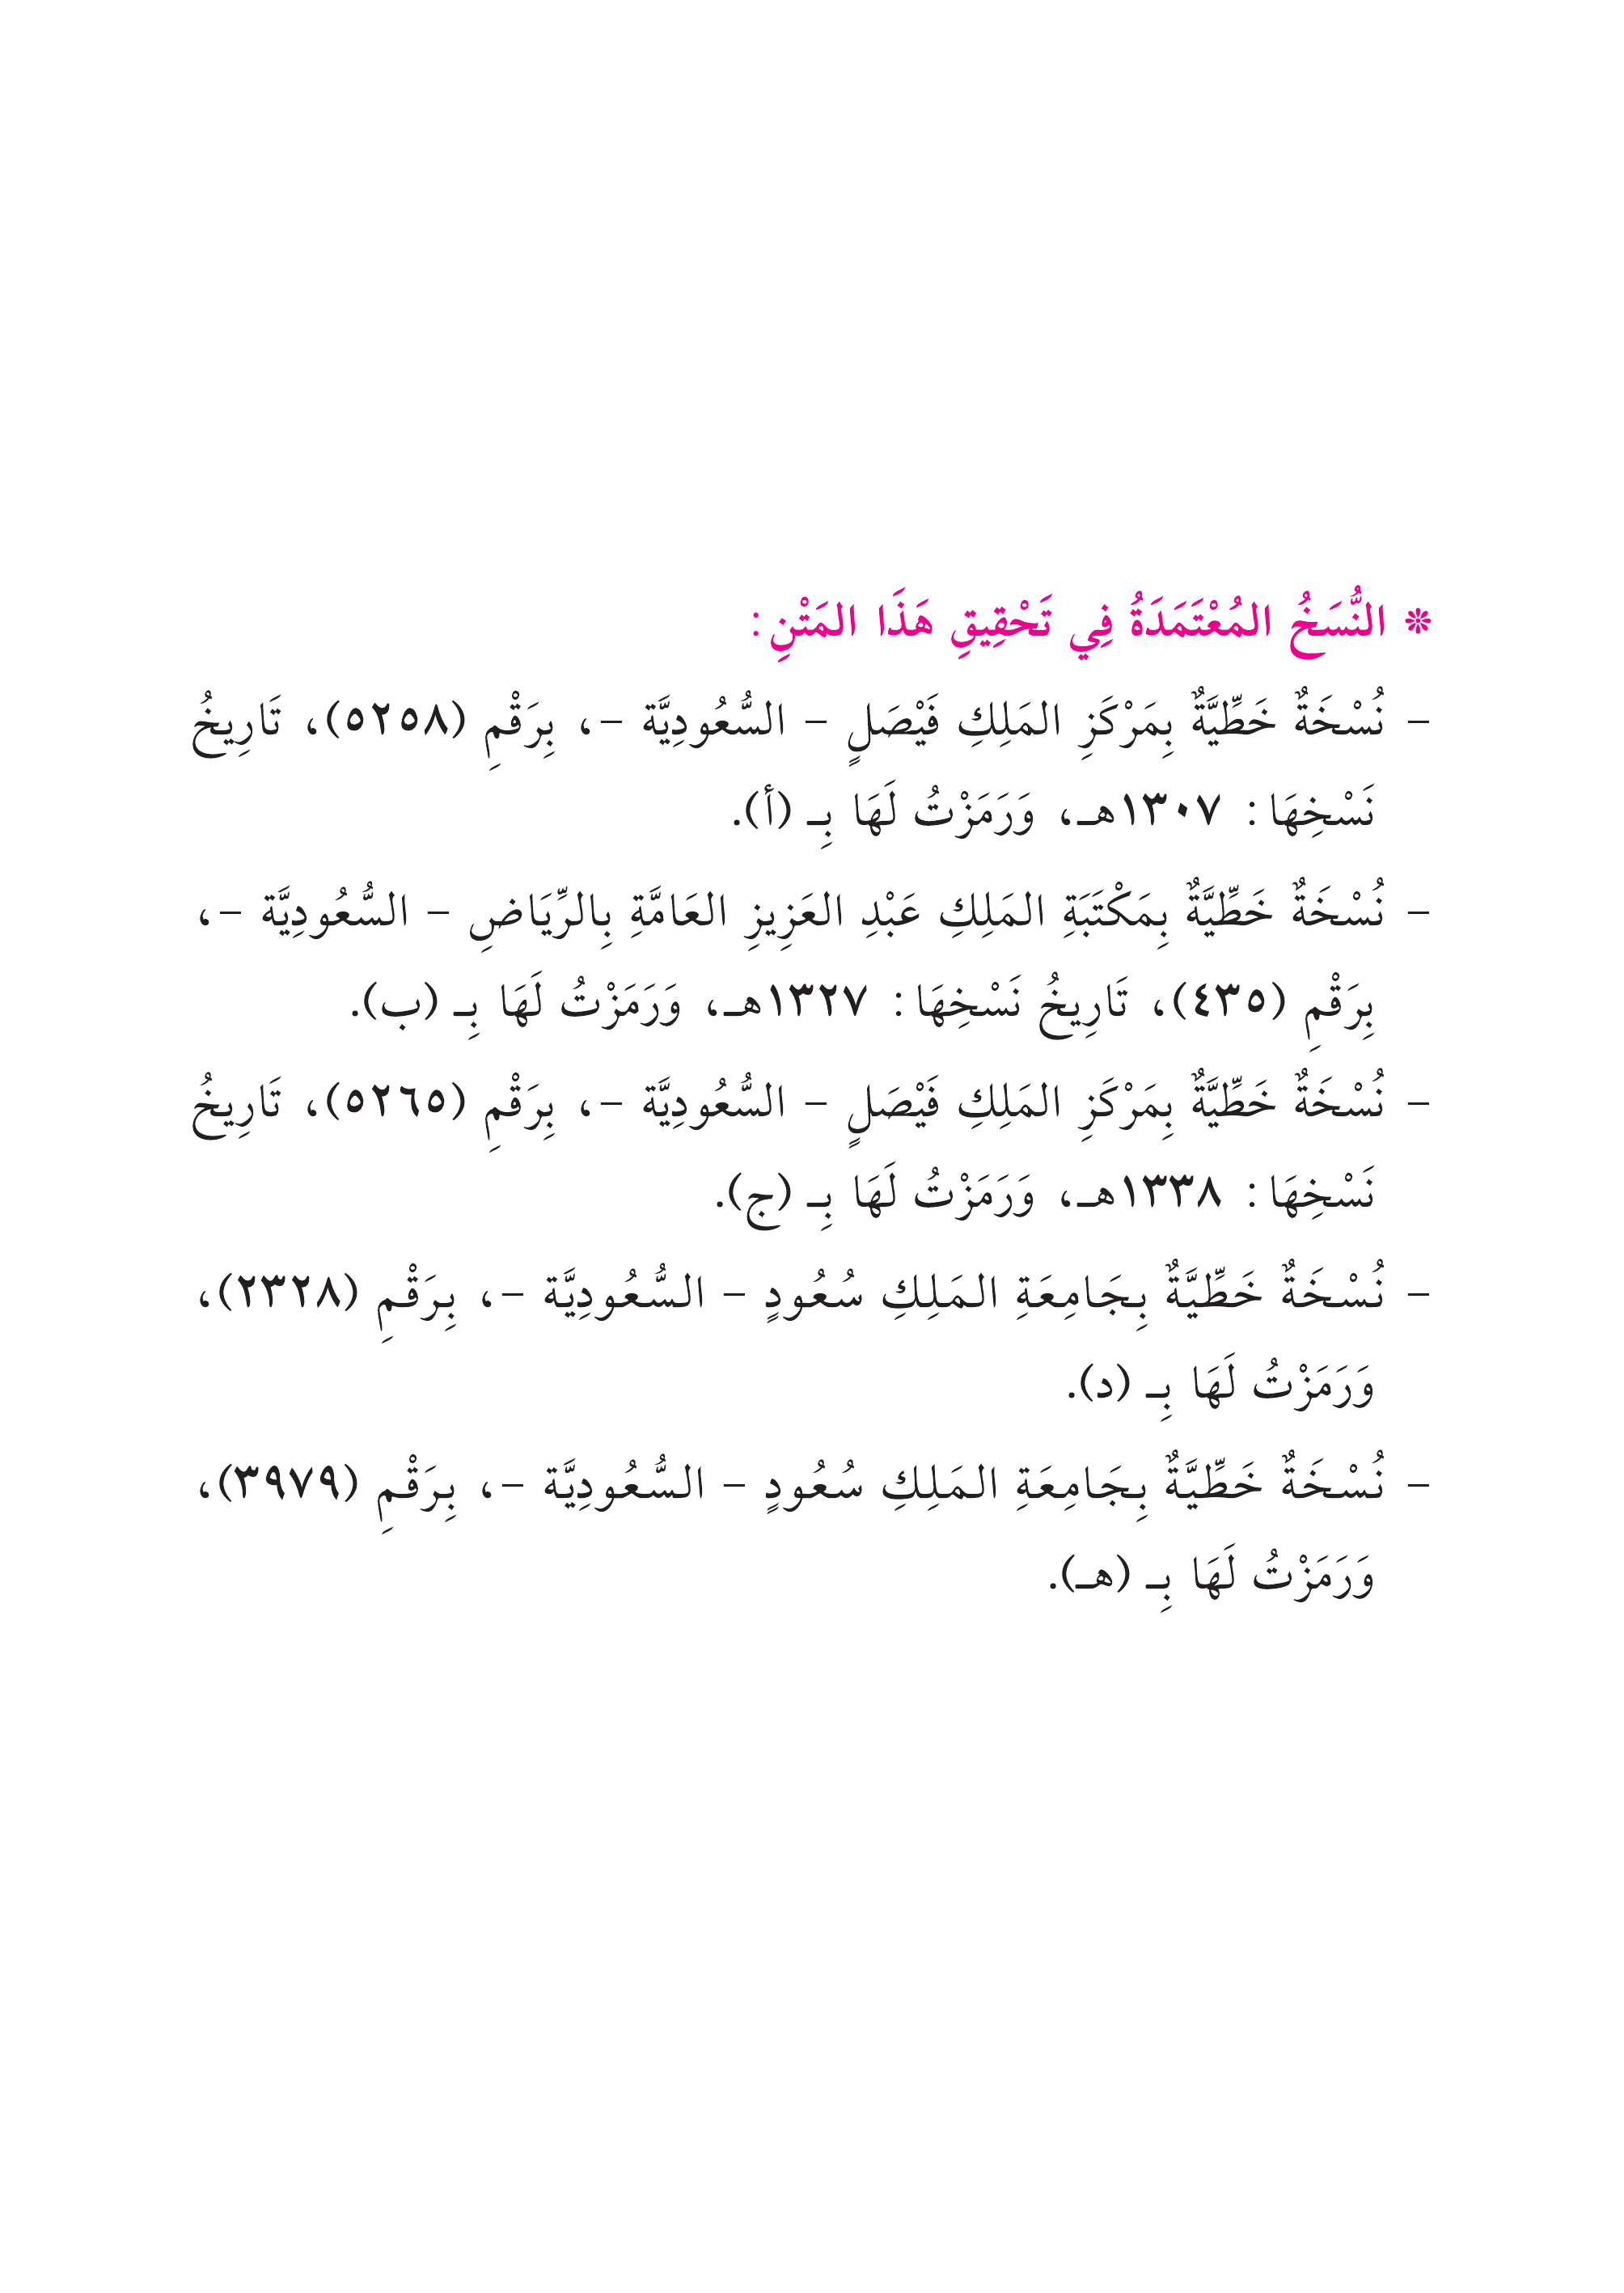 * النُّسَخُ المُعْتَمَدَةُ فِي تَحْقِيقِ هَذَا المَتْنِ:
- نُسْخَةٌ خَطِّيَّةٌ بِمَرْكَزِ المَلِكِ فَيْصَلٍ - السُّعُودِيَّة -، بِرَقْمِ (٥٢٥٨)، تَارِيخُ
نَسْخِهَا: ١٣٠٧هـ، وَرَمَزْتُ لَهَا بِـ (أ).
- نُسْخَةٌ خَطِّيَّةٌ بِمَكْتَبَةِ المَلِكِ عَبْدِ العَزِيزِ العَامَّةِ بِالرِّيَاضِ - السُّعُودِيَّة -،
بِرَقْمِ (٤٣٥)، تَارِيخُ نَسْخِهَا: ١٣٢٧هـ، وَرَمَزْتُ لَهَا بِـ (ب).
- نُسْخَةٌ خَطِّيَّةٌ بِمَرْكَزِ المَلِكِ فَيْصَلٍ - السُّعُودِيَّة -، بِرَقْمِ (٥٢٦٥)، تَارِيخُ
نَسْخِهَا: ١٣٣٨هـ، وَرَمَزْتُ لَهَا بِـ (ج).
- نُسْخَةٌ خَطِّيَّةٌ بِجَامِعَةِ المَلِكِ سُعُودٍ - السُّعُودِيَّة -، بِرَقْمِ (٢٣٢٨)،
وَرَمَزْتُ لَهَا بِـ (د).
- نُسْخَةٌ خَطِّيَّةٌ بِجَامِعَةِ المَلِكِ سُعُودٍ - السُّعُودِيَّة -، بِرَقْمِ (٣٩٧٩)،
وَرَمَزْتُ لَهَا بِـ (هـ).